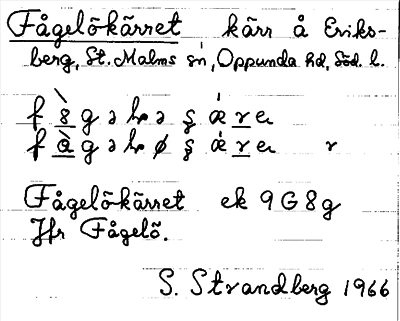 Fågelökärret kärr å Eriks-
berg, St. Malms sn, Oppunda hd, Söd. l.
Fågelökärret ek 9G8g
Jfr Fågelö.
S. Strandberg 1966